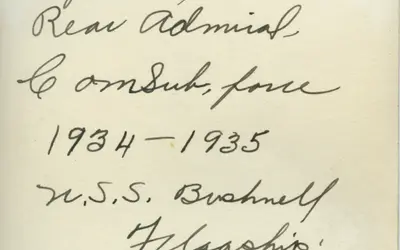 Rear Admiral,
ComSub, force
1934-1935
U.S.S. Bushnell
Flagship.